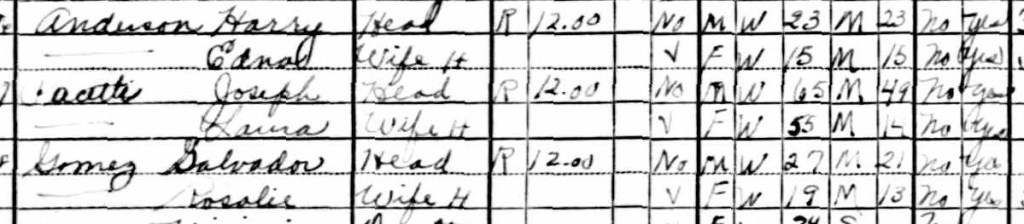 Anderson Harry Head R 12.00 No M W 23 M 23 No Yes
Edna Wife H V F W 15 M 15 No Yes
Joseph Head R 12.00 No M W 65 M 49 No Yes
Laura Wife H V F W 55 M No Yes
Gomez Salvador Head R 12.00 No M W 27 M 21 No Yes
Rosalie Wife H V F W 19 M 13 No Yes